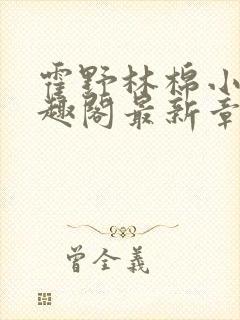 霍野林棉小
趣阁最新章
曾全義